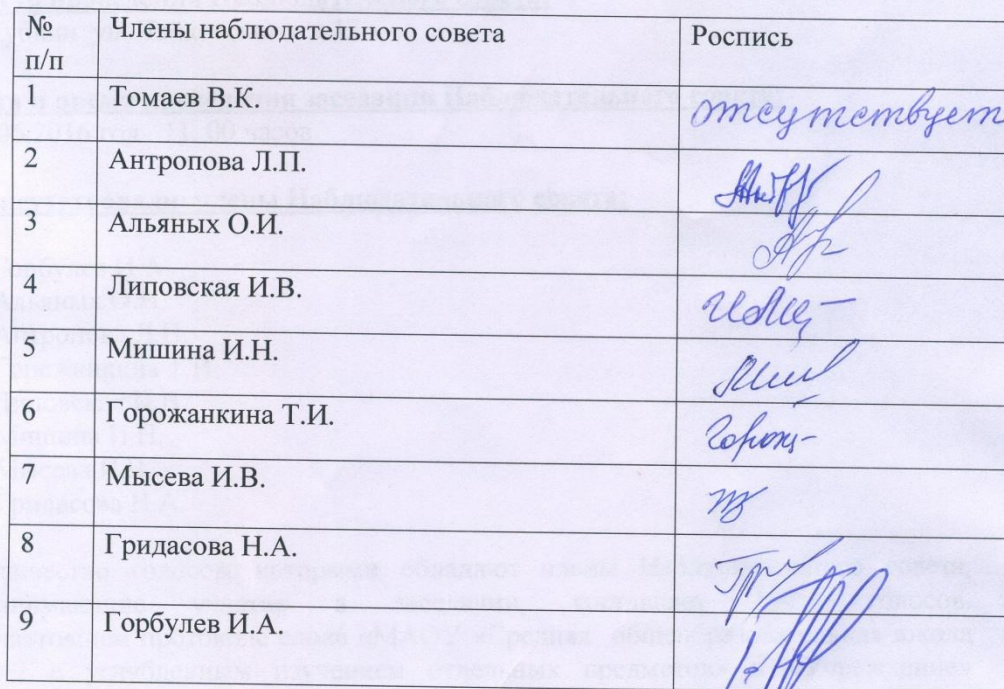 № Члены наблюдательного совета Роспись
п/п
1 Томаев В.К. отсутствует
2 Антропова Л.П.
3 Альяных О.И.
4 Липовская И.В.
5 Мишина И.Н.
6 Горожанкина Т.И.
7 Мысева И.В.
8 Гридасова Н.А.
9 Горбулев И.А.